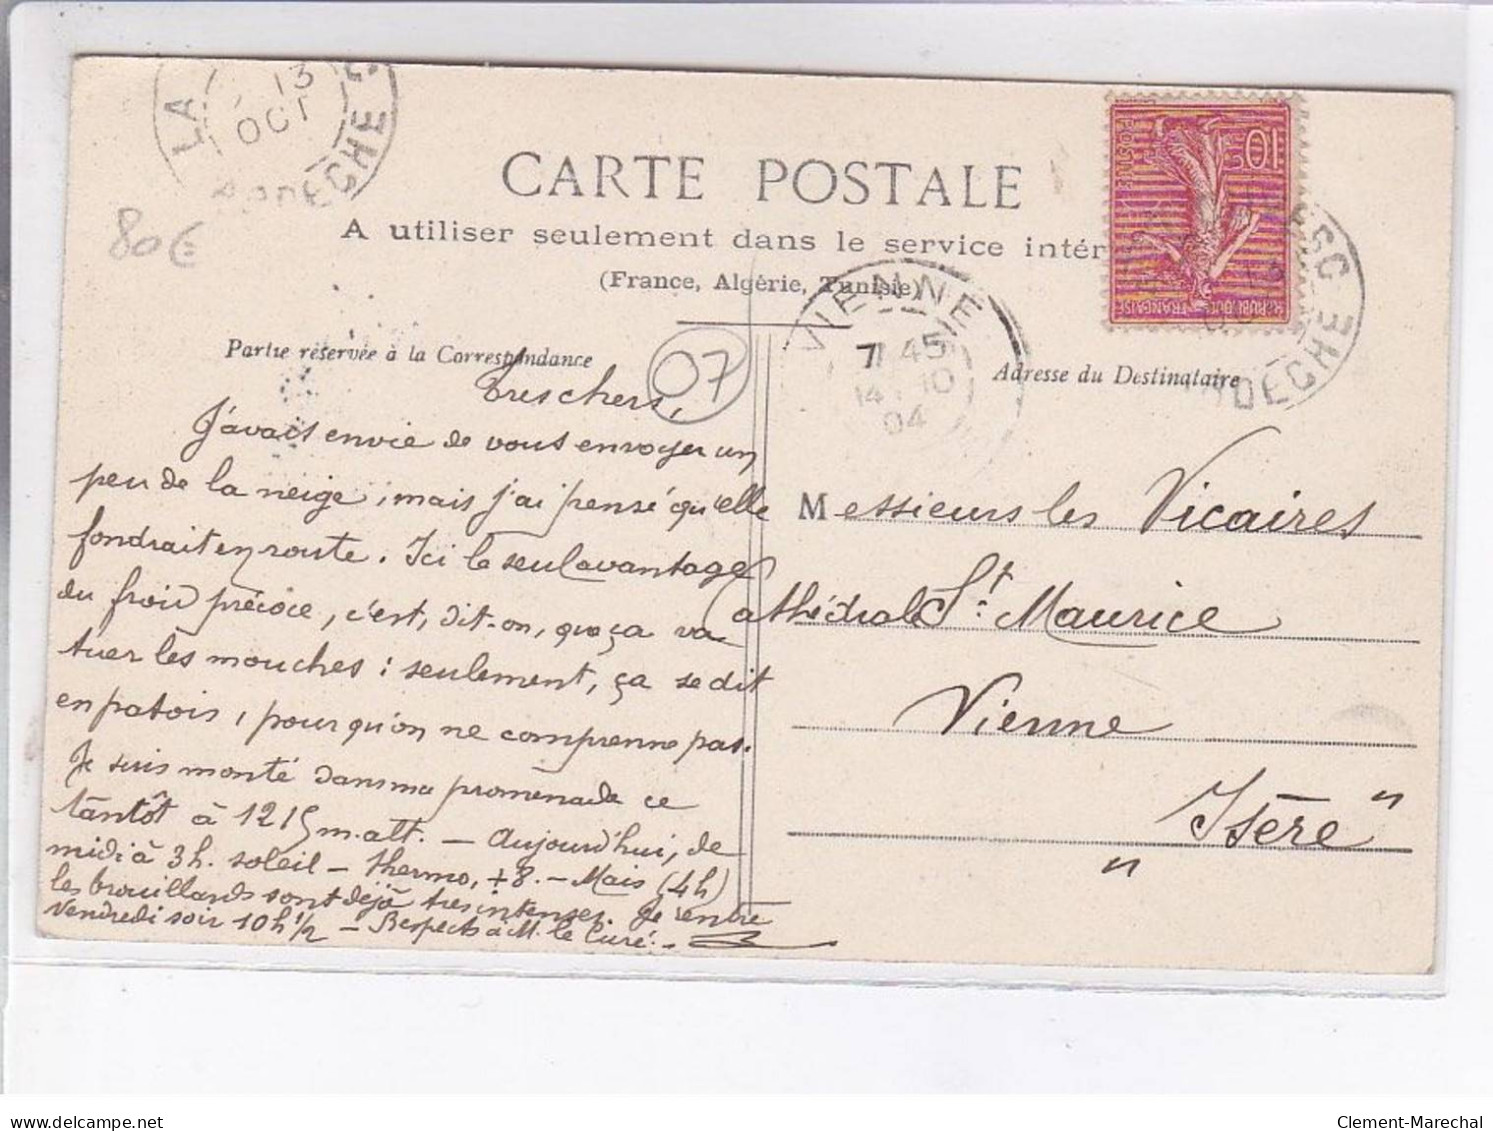 LA 13 OCT ARDECHE
80€
CARTE POSTALE
A utiliser seulement dans le service intér
(France, Algérie, Tunisie)
10c POSTES
REPUBLIQUE FRANÇAISE
ESC ARDECHE 13
VIENNE
7 45
14 10
04
07
Partie réservée à la Correspondance
Adresse du Destinataire
Tres chers,
J'avais envie de vous envoyer un
peu de la neige, mais j'ai pensé qu'elle
fondrait en route. Ici le seul avantage
du froid précoce, c'est, dit-on, que ça va
tuer les mouches : seulement, ça se dit
en patois, pour qu'on ne comprenne pas.
Je suis monté dans ma promenade ce
tantôt à 1215 m. alt. — Aujourd'hui, de
midi à 3h. soleil — thermo, +8. — Mais (4h)
les brouillards sont déjà tres intenses. Je rentre
Vendredi soir 10h 1/2 — Respects à M. le Curé. —
Messieurs les Vicaires
Cathédrale St. Maurice
Vienne
" Isère "
www.delcampe.net
Clement-Marechal